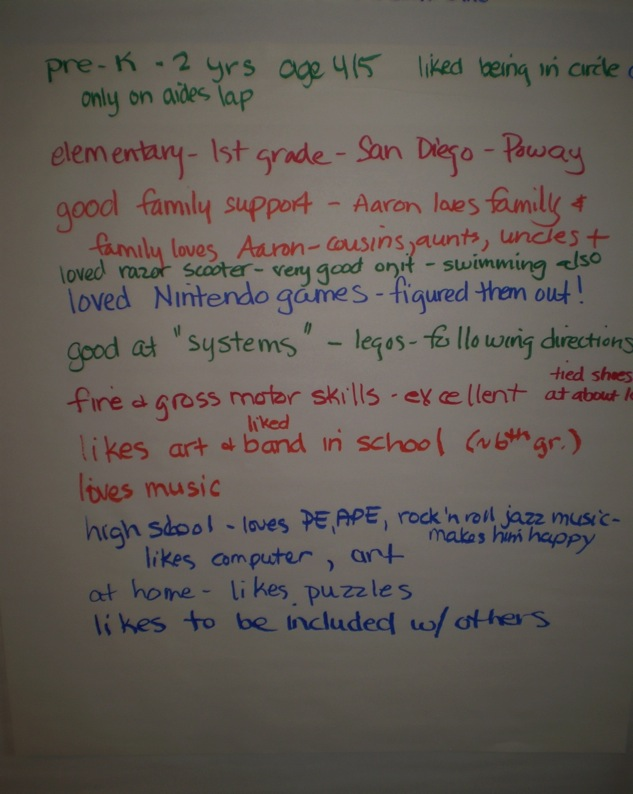 pre-K - 2 yrs age 4/5 liked being in circle
only on aides lap
elementary - 1st grade - San Diego - Poway
good family support - Aaron loves family &
family loves Aaron - cousins, aunts, uncles +
loved razor scooter - very good on it - swimming also
loved Nintendo games - figured them out!
good at "systems" - legos - following directions
tied shoes
fine & gross motor skills - excellent at about
liked
likes art & band in school (~6th gr.)
loves music
high school - loves PE, APE, rock 'n roll jazz music -
makes him happy
likes computer, art
at home - likes puzzles
likes to be included w/ others